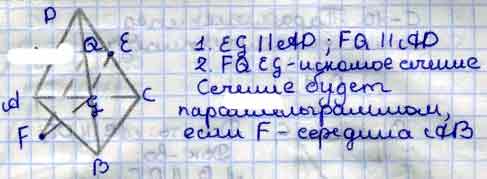 D
Q E
A
G
C
F
B
1. EG || AD ; FQ || AD
2. FQ EG - искомое сечение
Сечение будет
параллелограммом,
если F - середина AB